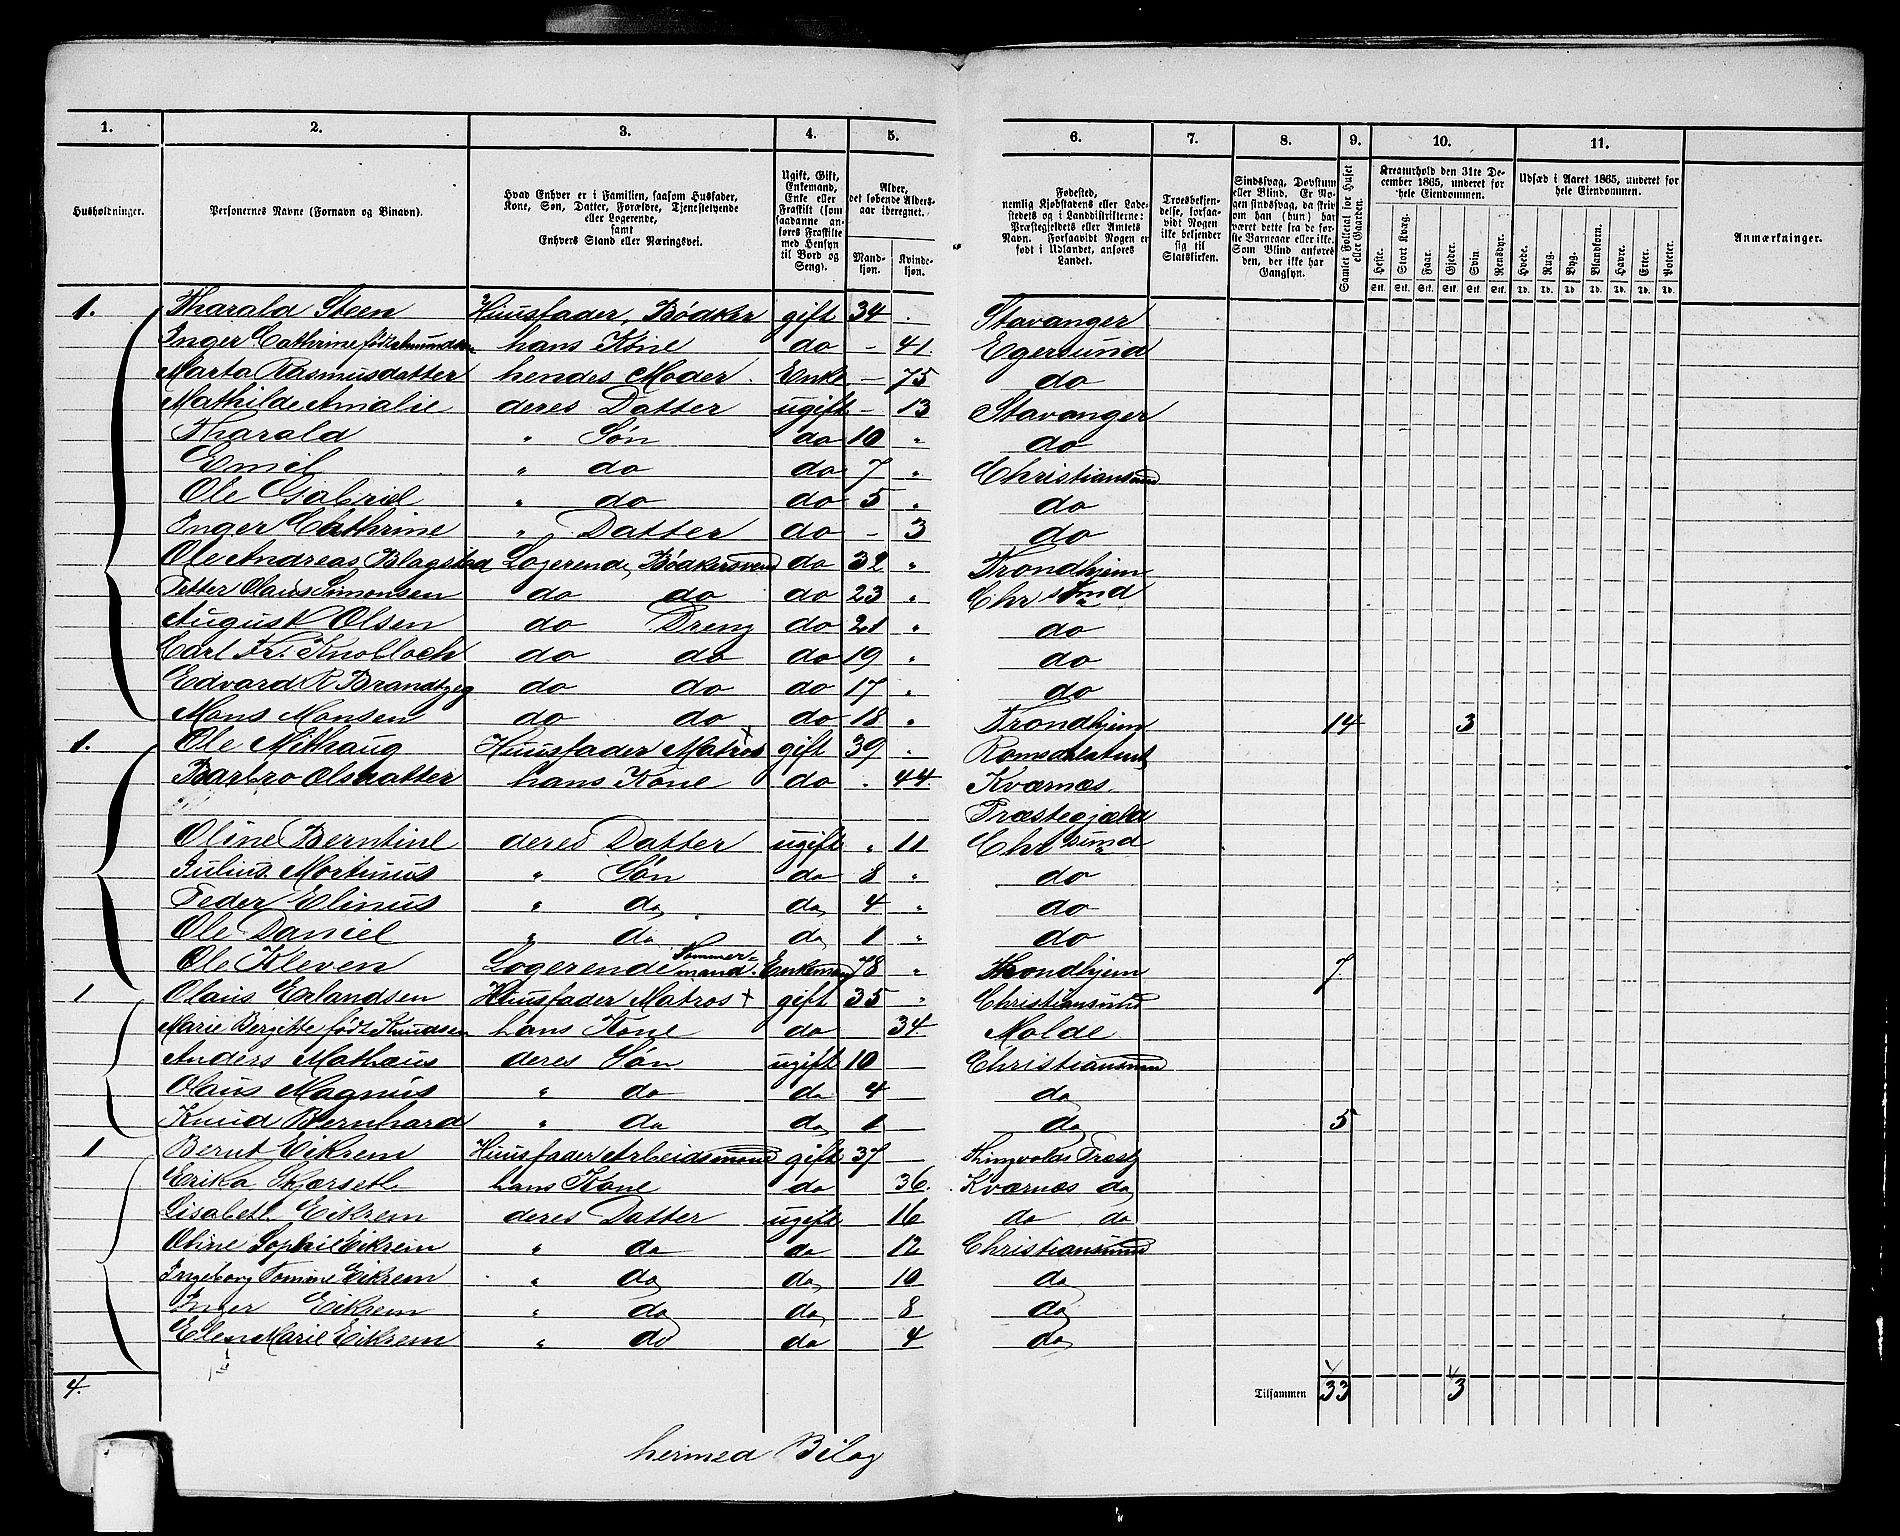 1. 2. 3. 4. 5. 6. 7. 8. 9. 10. 11.
Husholdninger.
Personernes Navne (Fornavn og Binavn).
Hvad Enhver er i Familien, saasom Husfader, Kone, Søn, Datter, Forældre, Tjenestetyende eller Logerende, samt Enhvers Stand eller Næringsvei.
Ugift, Gift, Enkemand, Enke eller Fraskilt (som saadanne anføres Fraskilte med Hensyn til Bord og Seng).
Alder, det løbende Alders-aar iberegnet. Mandkjøn. Kvindekjøn.
Fødested, nemlig Kjøbstadens eller Ladestedets og i Landdistrikterne: Præstegjeldets eller Amtets Navn. Forsaavidt Nogen er født i Udlandet, anføres Landet.
Troesbekjendelse, forsaavidt Nogen ikke bekjender sig til Statskirken.
Sindssvag, Døvstum eller Blind. Er Nogen sindssvag, da skriv om han (hun) har været dette fra de første Barneaar eller ikke. Som Blind anføres den, der ikke har Gangsyn.
Samlet Folketal for Huset eller Gaarden.
Kreaturhold den 31te December 1865, underet for hele Eiendommen. Heste. Stort Kvæg. Faar. Gjeder. Svin. Rensdyr.
Udsæd i Aaret 1865, underet for hele Eiendommen. Hvede. Rug. Byg. Blandkorn. Havre. Erter. Poteter.
Anmærkninger.
1. Tharald Steen Huusfader, Bødker gift 34 Stavanger
Inger Cathrine født Amundsen hans Kone do - 41. Egersund
Marta Rasmusdatter hendes Moder. Enke - 75 do
Mathilde Amalie deres Datter ugift - 13 Stavanger
Tharald " Søn do 10 " do
Emil " do do 7 " Christiansund
Ole Gabriel " do do 5 " do
Inger Cathrine " Datter do - 3 do
Ole Andreas Blagstad Logerende, Bødkersvend do 32 " Trondhjem
Petter Olaus Simonsen do do do 23 " Chrsund
August Olsen do Dreng do 21 " do
Carl Fr. Knobloch do do do 19 " do
Edvard R Brandtzeg do do do 17 " do
Mons Monsen do do do 18 " Trondhjem 14 3
1. Ole Mithaug Huusfader Matros gift 39 Romsdalsamt
Barbro Olsdatter hans Kone do 44. Kværnæs
Præstegjæld
Oline Berntine deres Datter ugift " 11 Chrsund
Julius Mortinus " Søn do 8 " do
Peder Elinus " do do 4 " do
Ole Daniel " do do 1 " do
Ole Kleven Logerende Tømmermand. Enkemand 78 " Trondhjem 7
1 Olaus Erlandsen Huusfader Matros gift 35 " Christiansund
Marie Bergitte født Knudsen hans Kone do 34. Molde
Anders Mathæus deres Søn ugift 10 Christiansund
Olaus Magnus " do do 4 do
Knud Bernhard " do do 1 do 5
1 Bernt Eikrem Huusfader Arbeidsmand gift 37 Thingvolds Præstg
Erika Skjørsetl. hans Kone do 36. Kværnæs do
Lisabeth Eikrem deres Datter ugift 16 do do
Oline Sophie Eikrem " do do 12 Christiansund
Ingeborg Tomine Eikrem " do do 10 do
Inger Eikrem " do do 8 do
Elen Marie Eikrem " do do 4 do
4. Tilsammen 33 3
hermed Bilag